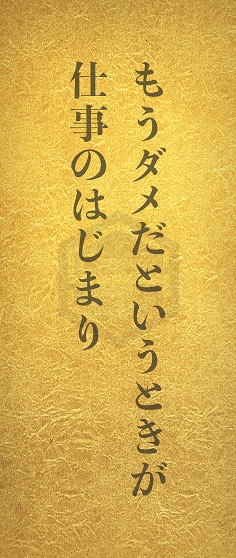 もうダメだというときが
仕事のはじまり